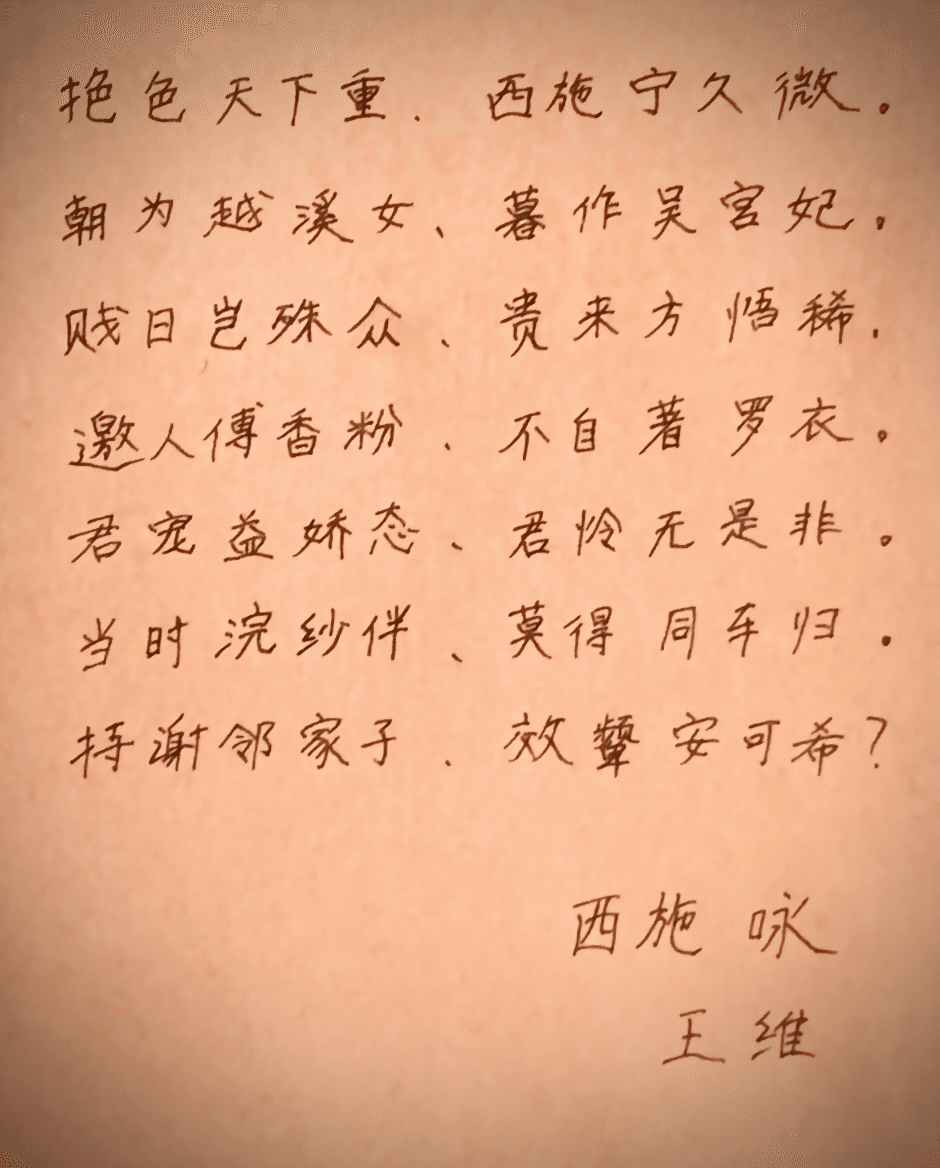 艳色天下重.西施宁久微。
朝为越溪女、暮作吴宫妃。
贱日岂殊众、贵来方悟稀.
邀人傅香粉.不自著罗衣。
君宠益娇态、君怜无是非。
当时浣纱伴、莫得同车归.
持谢邻家子.效颦安可希?
西施咏
王维